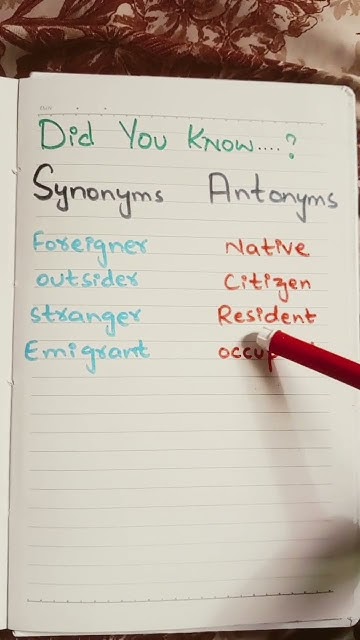 Did You Know....?
Synonyms Antonyms
Foreigner Native
outsider Citizen
stranger Resident
Emigrant